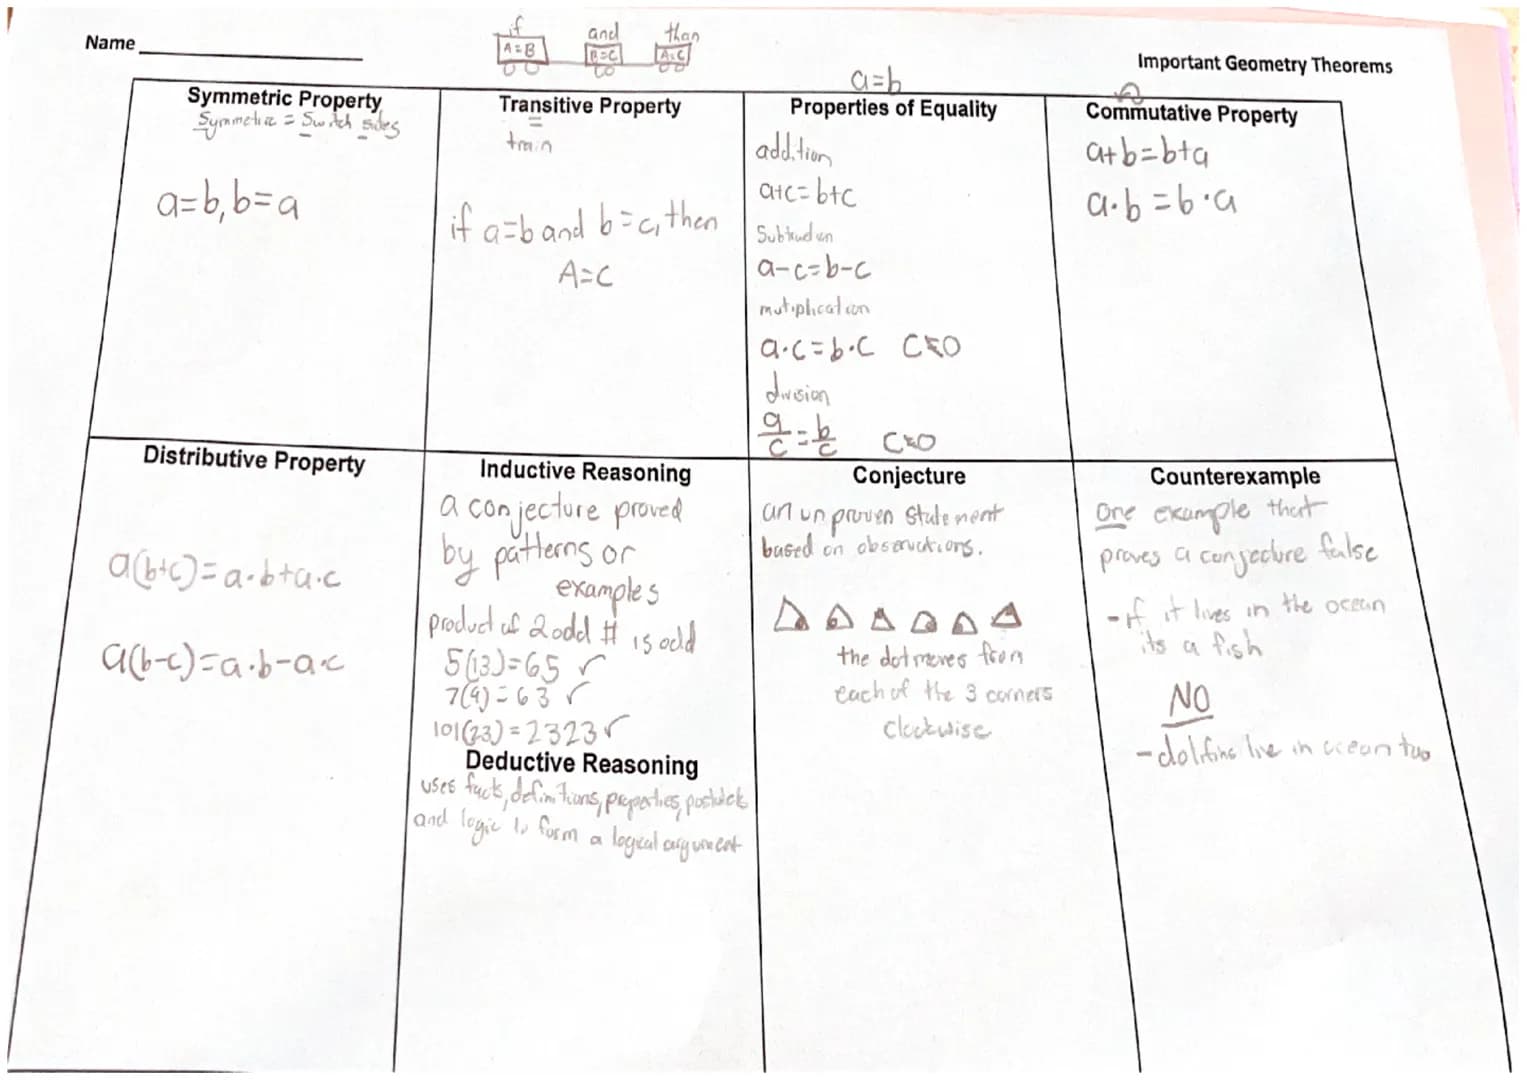 Name
if and than
A=B B=C A=C
Important Geometry Theorems
Symmetric Property
Symmetric = Switch sides
a=b, b=a
Transitive Property
train
if a=b and b=c, then
A=C
a=b
Properties of Equality
addition
a+c=b+c
a-c=b-c
mutiplication
a·c=b·c C≠0
division
a/c = b/c C≠0
Commutative Property
a+b=b+a
a·b=b·a
Distributive Property
a(b+c)=a·b+a·c
a(b-c)=a·b-a·c
Inductive Reasoning
a conjecture proved
by patterns or
examples
product of 2 odd # is odd
5(13)=65 ✓
7(9)=63 ✓
101(23)=2323 ✓
Deductive Reasoning
uses facts, definitions, properties,
and logic to form a logical argument
Conjecture
an unproven statement
based on observations.
the dot moves from
each of the 3 corners
clockwise
Counterexample
one example that
proves a conjecture false
- if it lives in the ocean
its a fish
NO
- dolfins live in ocean too